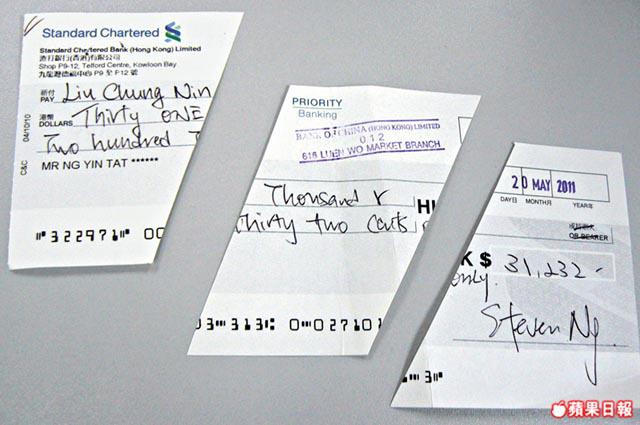 Standard Chartered
Standard Chartered Bank (Hong Kong) Limited
渣打銀行(香港)有限公司
Shop P9-12, Telford Centre, Kowloon Bay
九龍灣德福中心 P9 至 P12 號
C&C 04/10/10
祈付
PAY Liu Chung Nin
港幣
DOLLARS Thirty ONE
Two hundred
MR NG YIN TAT ******
322971 00
PRIORITY
Banking
BANK OF CHINA (HONG KONG) LIMITED
0 1 2
616 LUEN WO MARKET BRANCH
Thousand
Thirty two cents
03 313 0 002710
20 MAY 2011
DAY日 MONTH月 YEAR年
OR BEARER
K $ 31,232 -
only.
Steven Ng.
3
蘋果日報